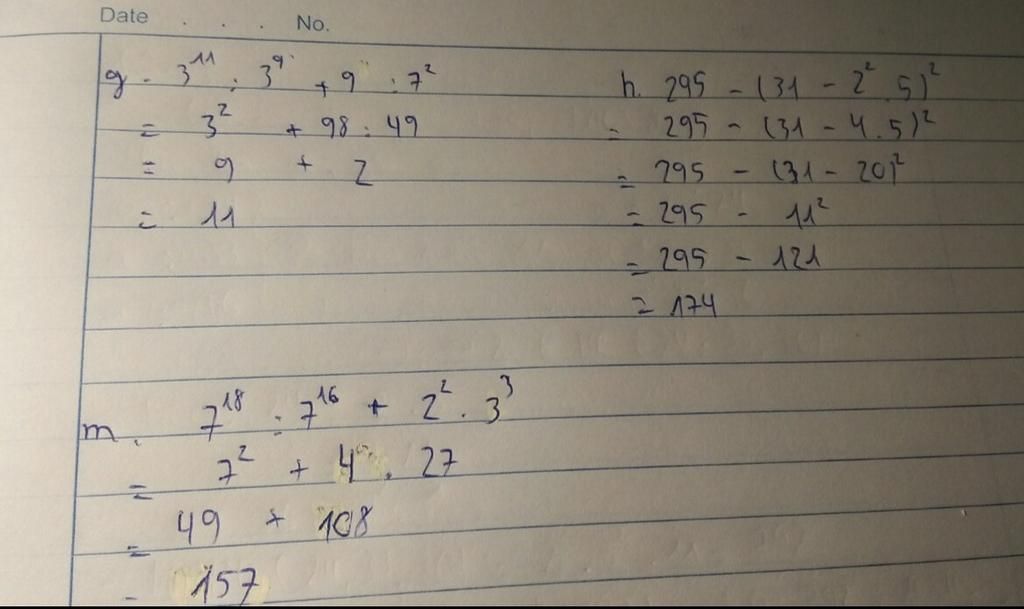 Date . . . . No.
g. 3¹¹ : 3⁹ + 9 : 7²
= 3² + 98 : 49
= 9 + 2
= 11
h. 295 - (31 - 2² . 5)²
= 295 - (31 - 4.5)²
= 295 - (31 - 20)²
= 295 - 11²
= 295 - 121
= 174
m. 7¹⁸ : 7¹⁶ + 2² . 3³
= 7² + 4 . 27
= 49 + 108
= 157